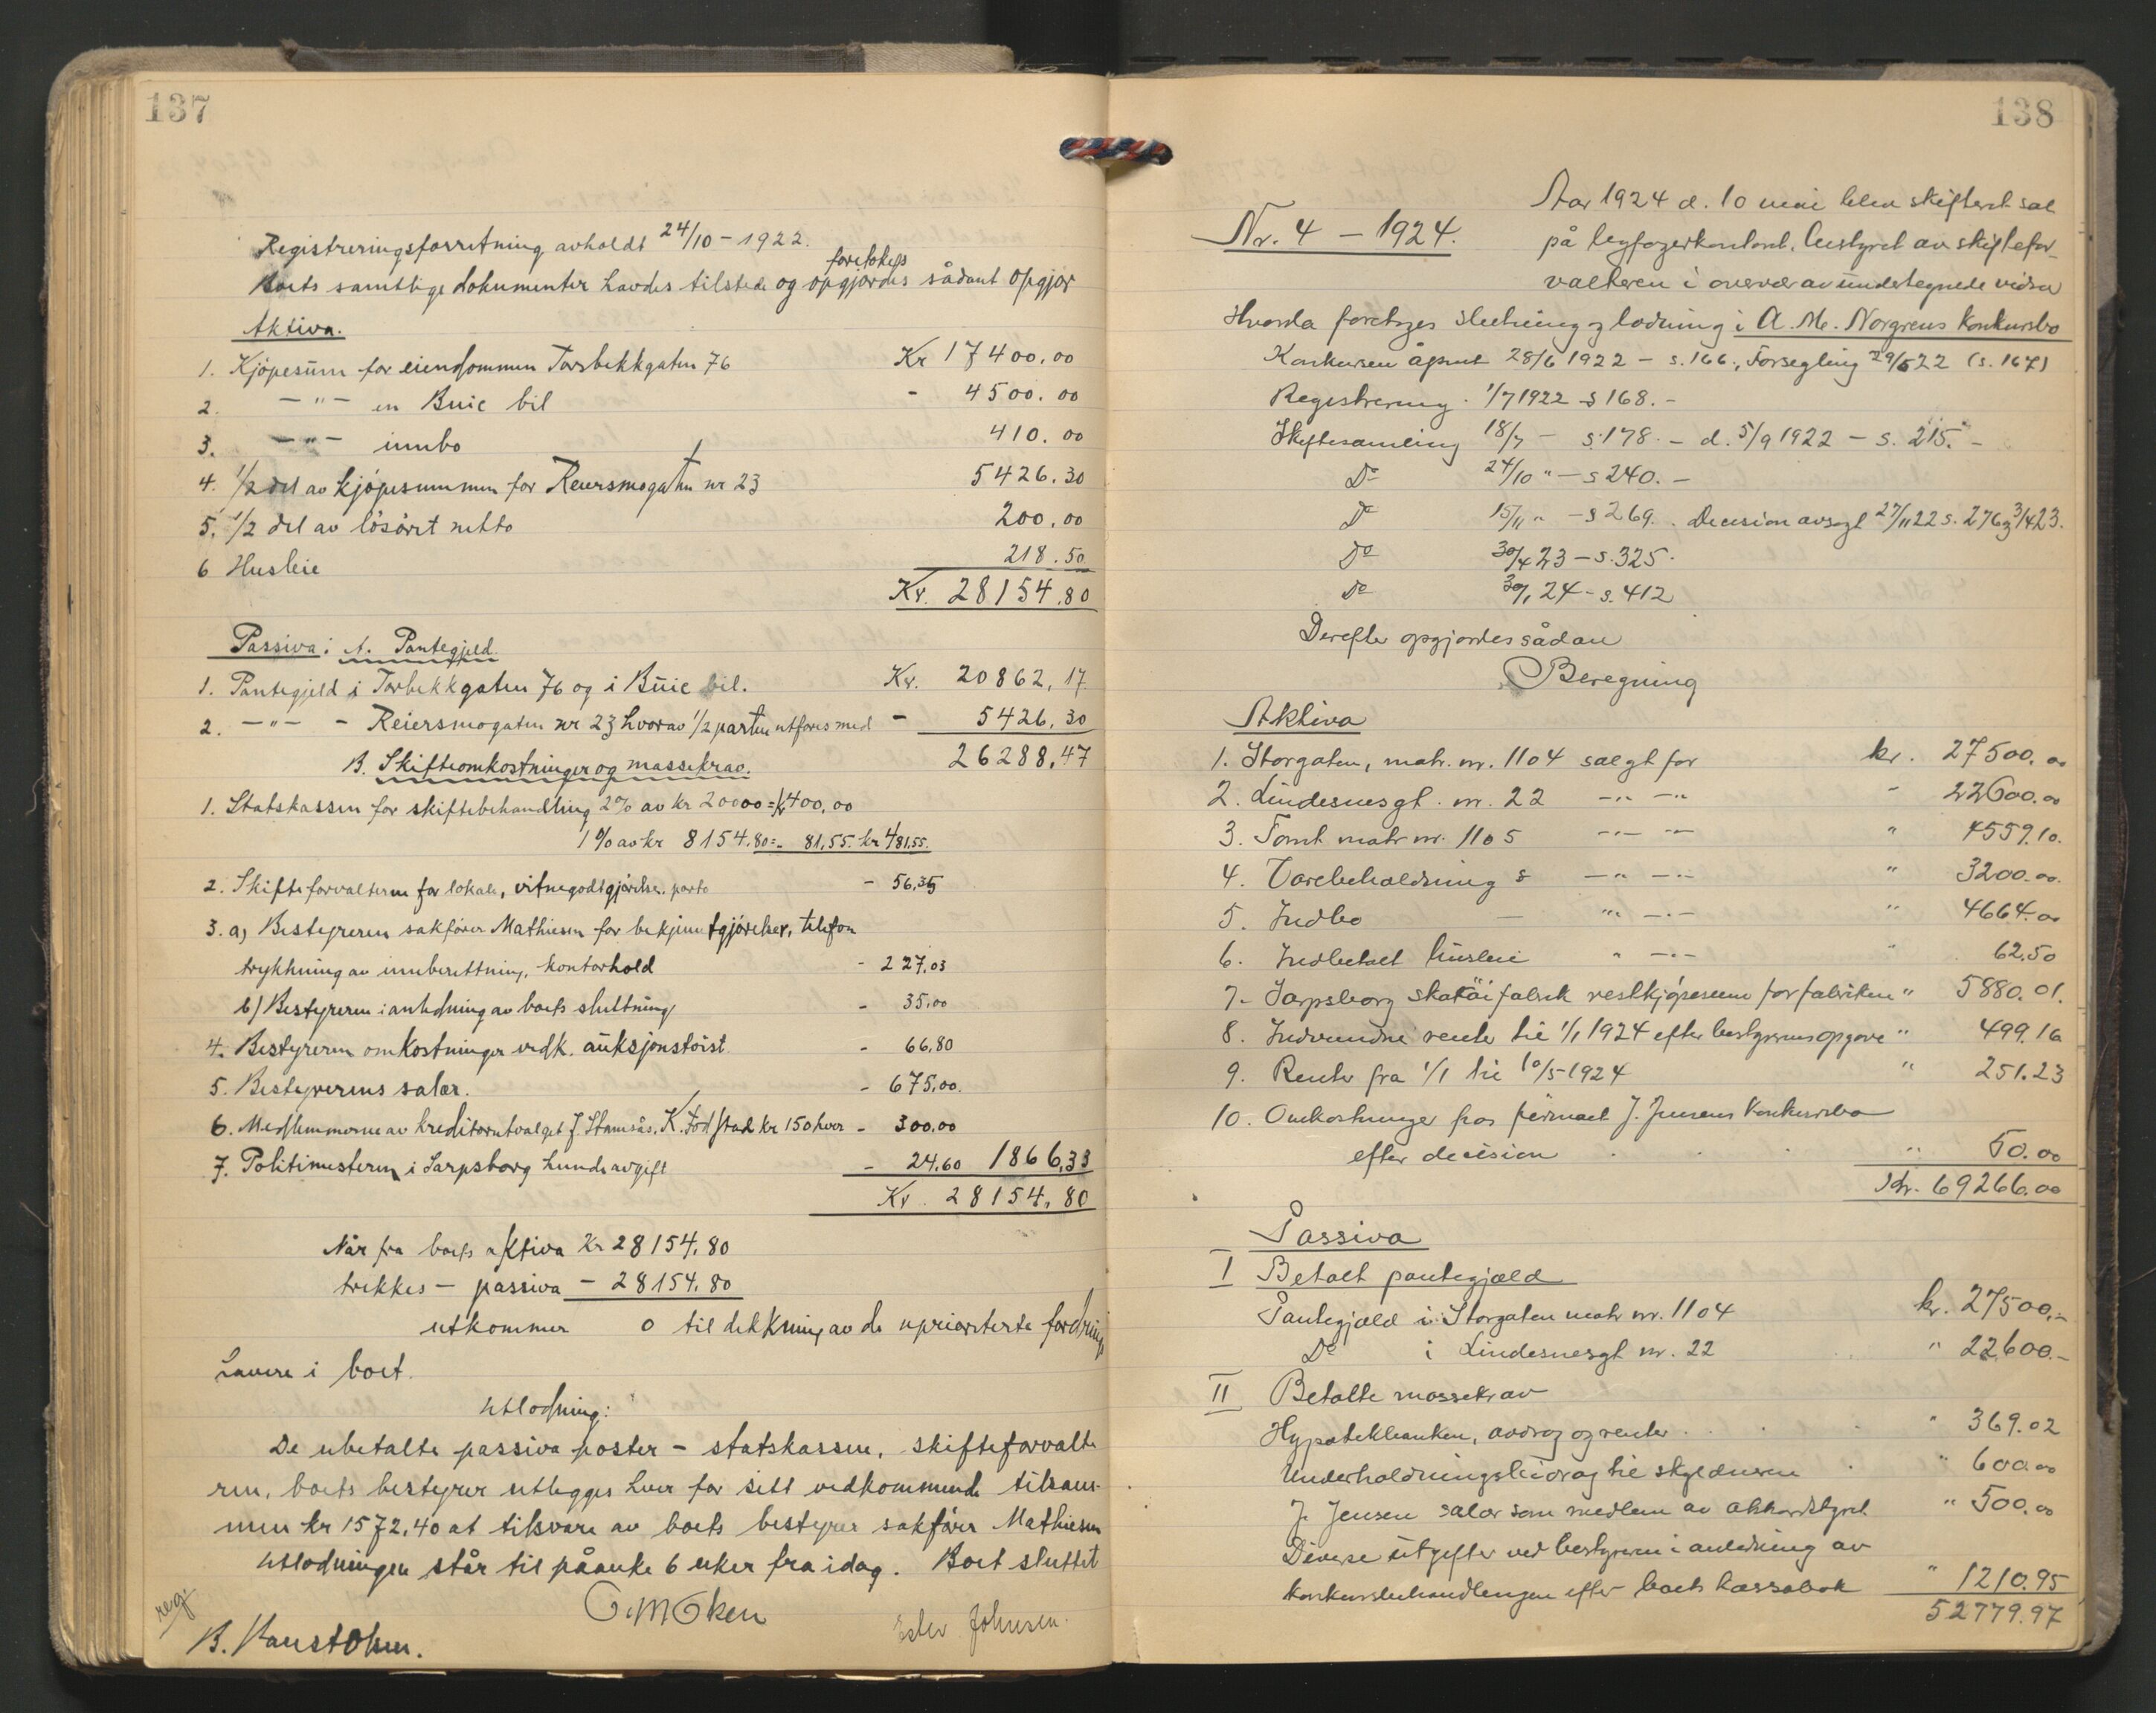 137
Registreringsforretning avholdt 24/10 - 1922.
foretokes
Boets samtlige dokumenter havdes tilstede og opgjordes sådant opgjør
Aktiva.
1. Kjøpesum for eiendommen Torsbekkgaten 76 Kr 17400.00
2. -"- en Buic bil - 4500.00
3. -"- innbo 410.00
4. 1/2 del av kjøpesummen for Reiersmogaten nr 23 5426.30
5. 1/2 del av løsøret netto 200.00
6 Husleie 218.50
Kr. 28154.80
Passiva: A. Pantegjeld.
1. Pantegjeld i Torbekkgaten 76 og i Buic bil. Kr. 20862,17
2. -"- - Reiersmogaten nr 23 hvorav 1/2 parten utføres med - 5426,30
26288,47
B. Skifteomkostninger og massekrav.
1. Statskassen for skiftebehandling 2% av kr 20000 = kr 400,00
1% av kr 8154.80 = - 81,55. kr 481,55.
2. Skifteforvalteren for lokale, vitnegodtgjørelse, porto - 56,35
3. a) Bestyreren sakfører Mathiesen for bekjenntgjørelser, telefon
trykkning av innberettning, kontorhold - 227,03
b) Bestyreren i anledning av boets sluttning - 35,00
4. Bestyreren omkostninger vedk. auksjonstoist - 66,80
5. Bestyrerens salær. - 675,00.
6. Medlemmerne av kreditorutvalget J. Stamsås, K. Fødstad kr 150 hver - 300,00
7. Politimesteren i Sarpsborg hundeavgift - 24,60 1866,33
Kr. 28154,80
Når fra boets aktiva Kr 28154,80
trekkes - passiva - 28154,80
utkommer 0 til dekkning av de uprioriterte fordrings
havere i boet.
Utlodning:
De ubetalte passiva poster - statskassen, skifteforvalte
ren, boets bestyrer utlegges hver for sitt vedkommende tilsam-
men kr 1572,40 at tilsvare av boets bestyrer sakfører Mathiesen
Utlodningen står til påanke 6 uker fra idag. Boet sluttet
reg.
Ester Johnsen.
138
Nr. 4 - 1924.
Aar 1924 d. 10 mai blev skifteret sat
på byfogedkontoret, bestyret av skiftefor-
valteren i overvær av undertegnede vidner
Hvorda foretoges slutning og lodning i A. M. Norgrens konkursbo
Konkursen åpnet 28/6 1922 - s. 166., Forsegling 29/6 22 (s. 167)
Registrering 1/7 1922 - s 168. -
Skiftesamling 18/7 - s. 178. - d. 5/9 1922 - s. 215. -
Do 24/10 " - s 240. -
Do 15/11 " - s 269. . Decision avsagt 27/11 22 s. 276 og 3/4 23.
Do 30/4 23 - s. 325.
Do 30/1 24 - s. 412
Derefter opgjordes sådan
Beregning
Aktiva
1. Storgaten, matr. nr. 1104 solgt for kr. 27500.00
2. Lindesnesgt. nr. 22 -"- -"- - 22600.00
3. Tomt matr nr. 1105 -"- -"- " 4559.10.
4. Varebeholdning s -"- -"- " 3200.00.
5. Indbo - "- -"- " 4664.00
6. Indbetalt husleie " -"- " 62.50
7. Sarpsborg skotøifabrik restkjøpesum for fabriken " 5880.01.
8. Indvundne renter til 1/1 1924 efter bestyrerens opgave " 499.16
9. Renter fra 1/1 til 10/5 - 1924 " 251.23
10. Omkostninger fra firmaet J. Jensens konkursbo
efter decision " 50.00
Kr. 69266.00
Passiva
I Betalt pantegjæld
Pantegjæld i Storgaten matr nr. 1104 kr. 27500,-
Do i Lindesnesgt nr. 22 " 22600.-
II Betalte massekrav
Hypotekbanken, avdrag og renter . . . " 369.02
Underholdningsbidrag til skyldneren . " 600.00
J. Jensen salær som medlem av akkordstyret " 500.00
Diverse utgifter ved bestyreren i anledning av
konkursbehandlingen efter boets kassabok " 1210.95
52779.97